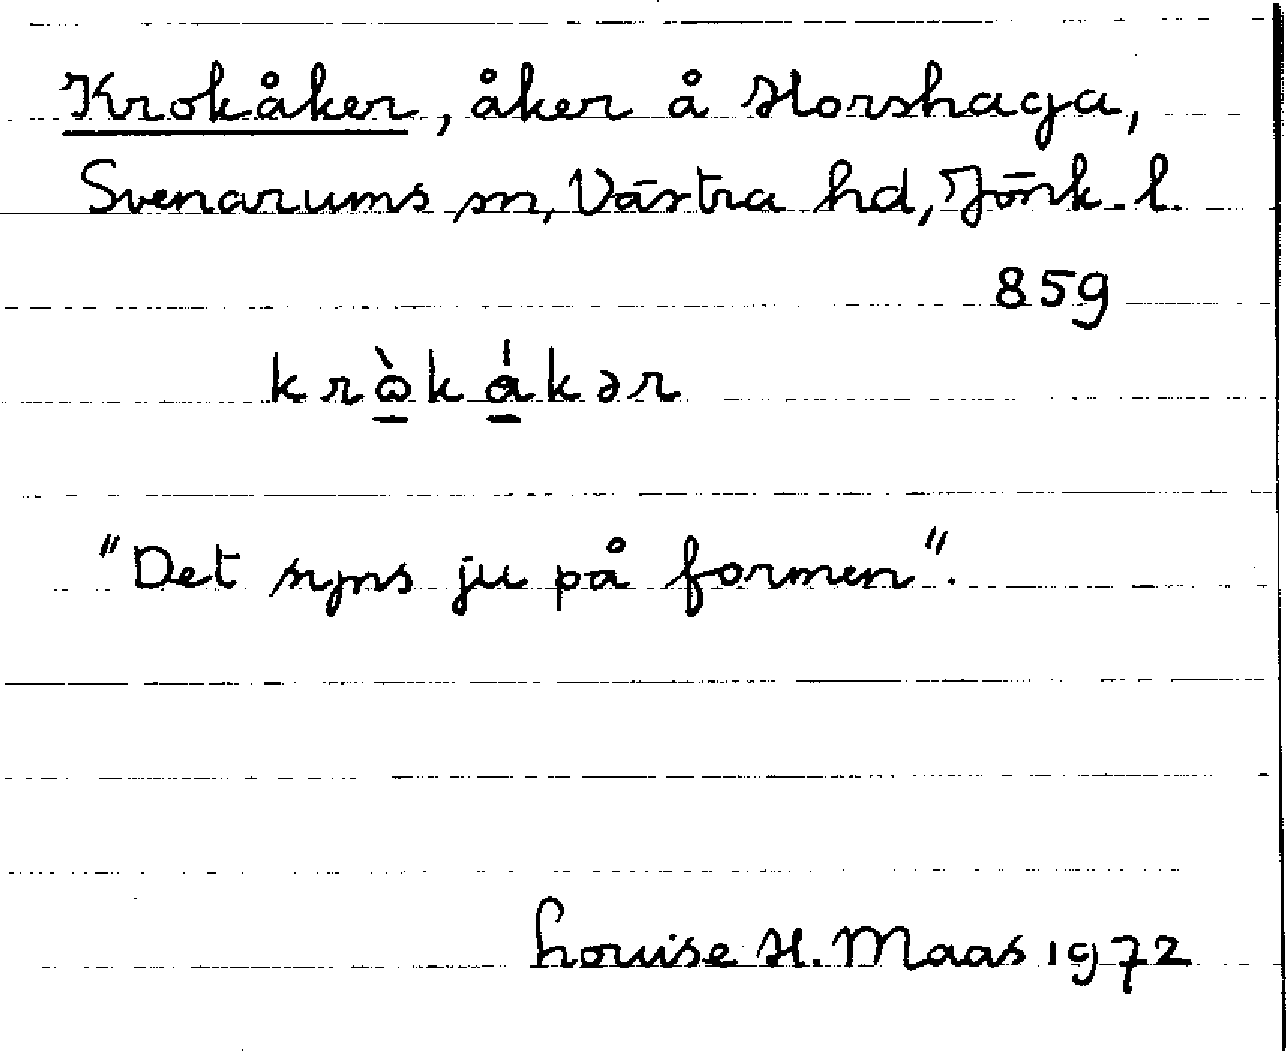 Krokåker, åker å Horshaga,
Svenarums sn, Västra hd, Jönk. l.
859
krὼ̱ká̱kər
"Det syns ju på formen".
Louise H. Maas 1972